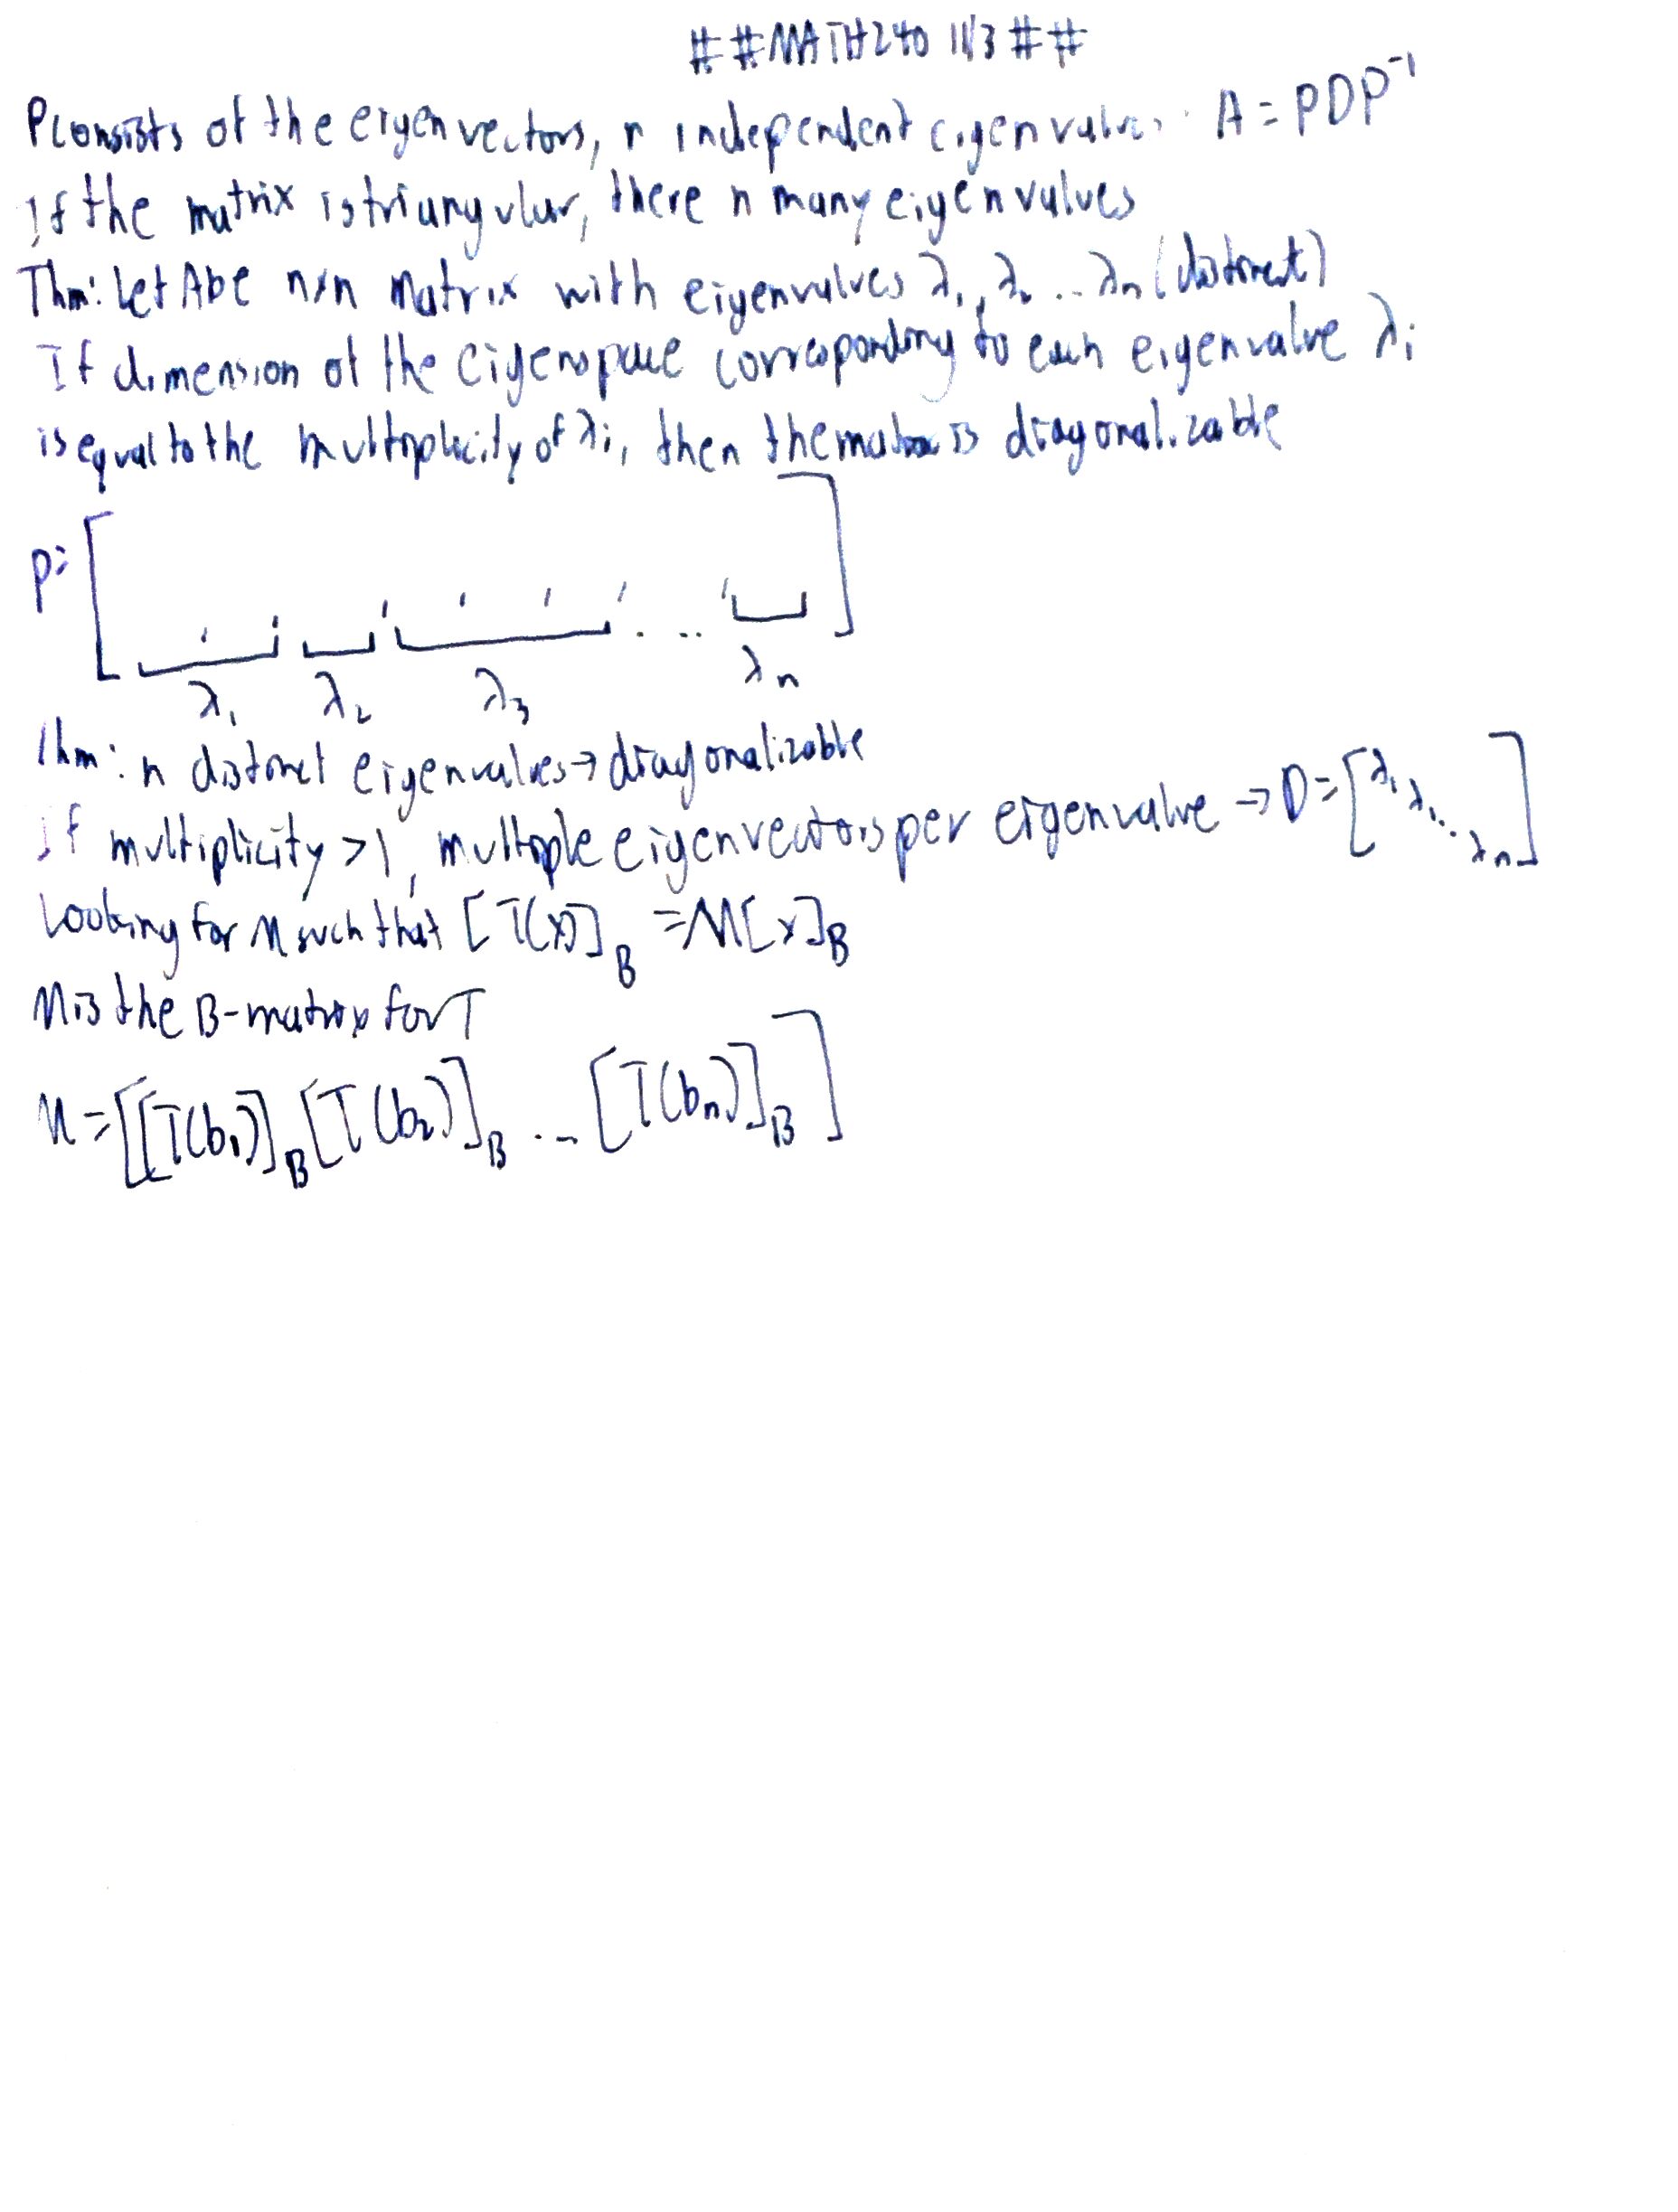 ##MATH240 11/3##
P consists of the eigenvectors, n independent eigenvalues. A = PDP⁻¹
If the matrix is triangular, there n many eigenvalues
Thm: Let A be n×n Matrix with eigenvalues λ₁, λ₂ ... λₙ (distinct)
If dimension of the eigenspace corresponding to each eigenvalue λᵢ
is equal to the multiplicity of λᵢ, then the matrix is diagonalizable
P= [ ... ]
λ₁ λ₂ λ₃ λₙ
Thm: n distinct eigenvalues → diagonalizable
If multiplicity > 1, multiple eigenvectors per eigenvalue → D = [λ₁ λ₁ ... λₙ]
Looking for M such that [T(x)]_B = M[x]_B
M is the B-matrix for T
M = [[T(b₁)]_B [T(b₂)]_B ... [T(bₙ)]_B]